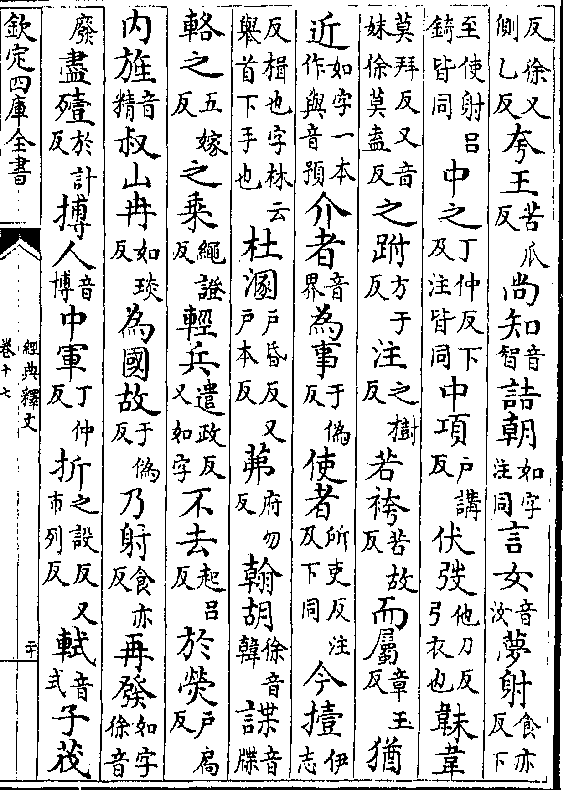 反徐又側乙反夸王苦瓜反尚知音智詰朝如字注同言女音汝夢射食亦反下
至使射呂錡皆同中之丁仲反下及注皆同中項戸講反伏弢他刀反弓衣也韎韋
莫拜反又音妹徐莫盍反之跗方于反注之樹反若袴苦故反而屬章玉反猶
近如字一本作與音預介者音界為事于偽反使者所吏反注及下同今撎伊志
反楫也字林云舉首下手也杜溷戸昏反又戸本反茀府勿反翰胡徐音韓諜音牒
輅之五嫁反之乘繩證反輕兵遣政反又如字不去起呂反於熒戸扃反
内旌音精叔山冉如琰反為國故于偽反乃射食亦反再發如字徐音
廢盡殪於計反搏人音博中軍丁仲反折之設反又市列反軾音式子茷
欽定四庫全書
經典釋文
卷十七